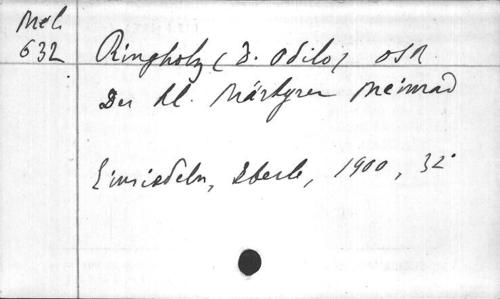 Mél
632
Ringholz (P. Odilo) OSB
Der hl. Märtyrer Meinrad
Einsiedeln, Eberle, 1900, 32°